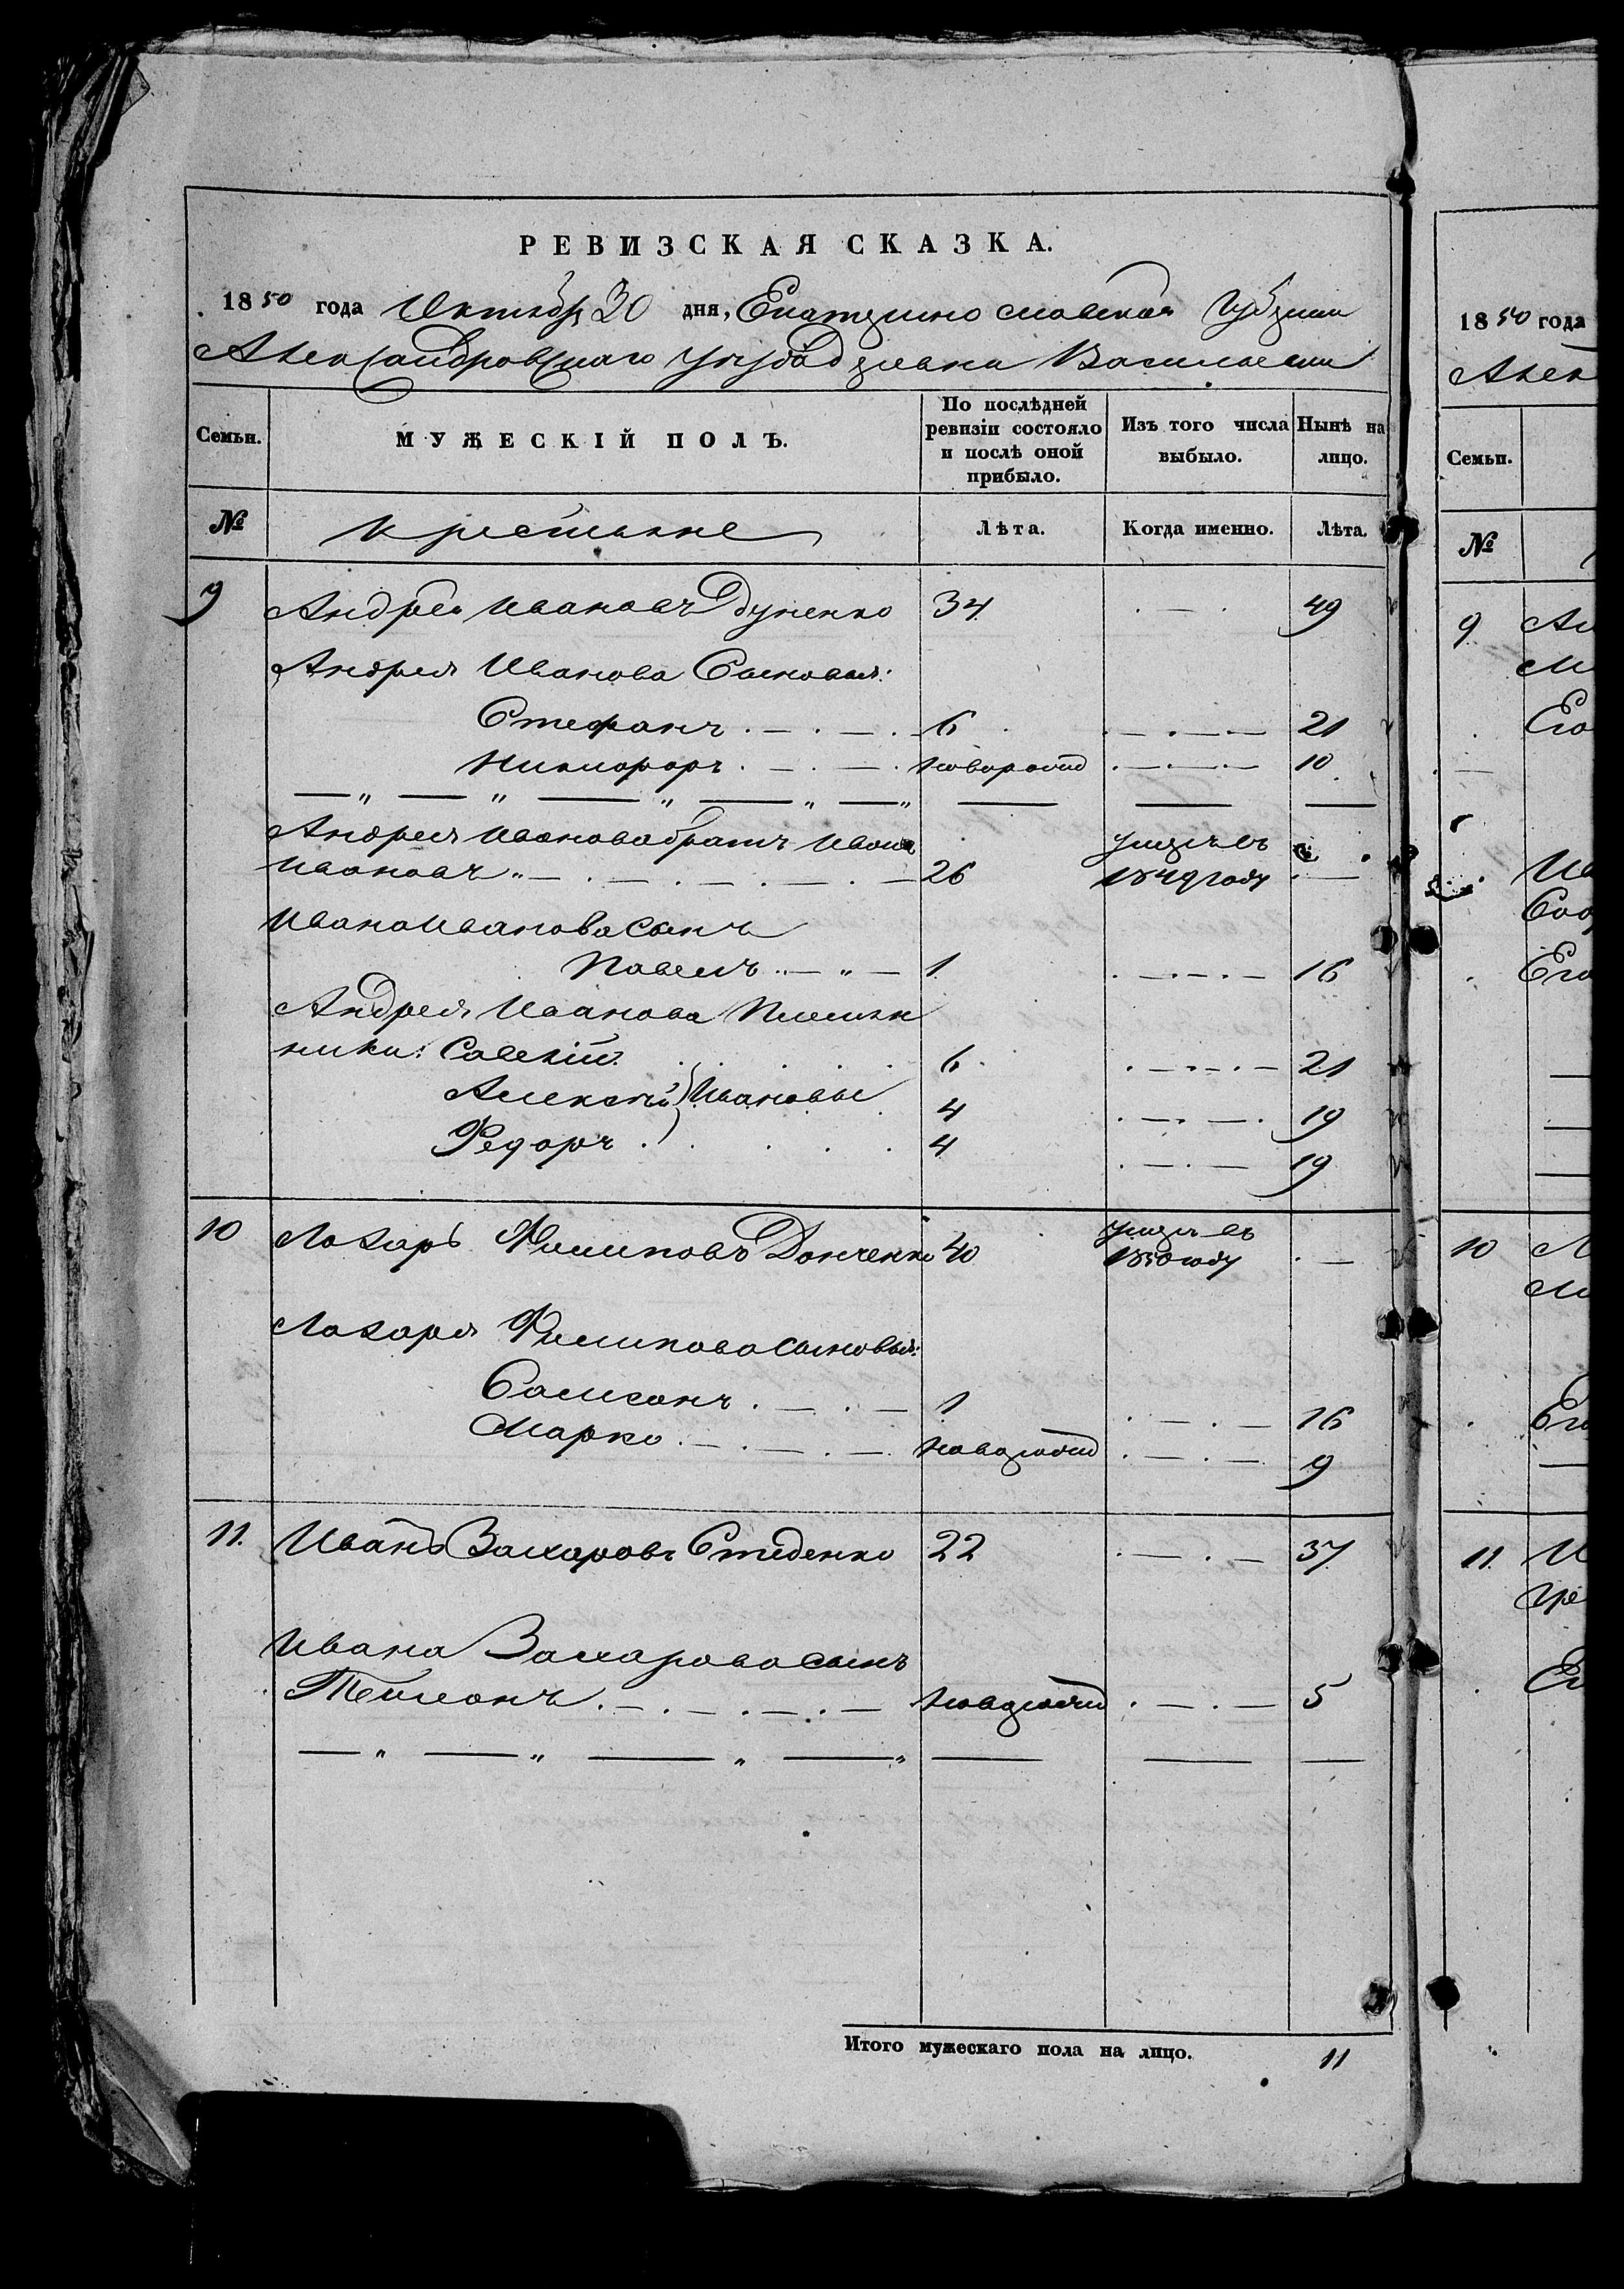 РЕВИЗСКАЯ СКАЗКА.
1850 года Октябр 30 дня, Екатеринославской Губернии
Александровскаго уезда деревни Васильевки
Семьи.
МУЖЕСКІЙ ПОЛЪ.
По послѣдней ревизіи состояло и послѣ оной прибыло.
Изъ того числа выбыло.
Нынѣ на лицо.
№ крестьяне Лѣта. Когда именно. Лѣта.
9 Андрей Ивановъ 34 49
Андрея Иванова Сыновья:
Стефанъ 6 21
Никифоръ новорожд 10
Андрея Иванова братъ Иванъ умеръ въ
Ивановъ 26 1849 году
Ивана Иванова сынъ
Павелъ 1 16
Андрея Иванова Племян
ники: Савелій 6 21
Алексѣй Ивановы 4 19
Федоръ 4 19
10 Лазарь Филиповъ Донченко 40 умеръ въ 1850 году
Лазаря Филипова сыновья:
Самсонъ 1 16
Марко новорожд 9
11. Иванъ Захаровъ 22 37
Ивана Захарова сынъ
новорожд 5
Итого мужескаго пола на лицо. 11
1850 года
Алек
Семьи.
№
9
Его
Его
10
11